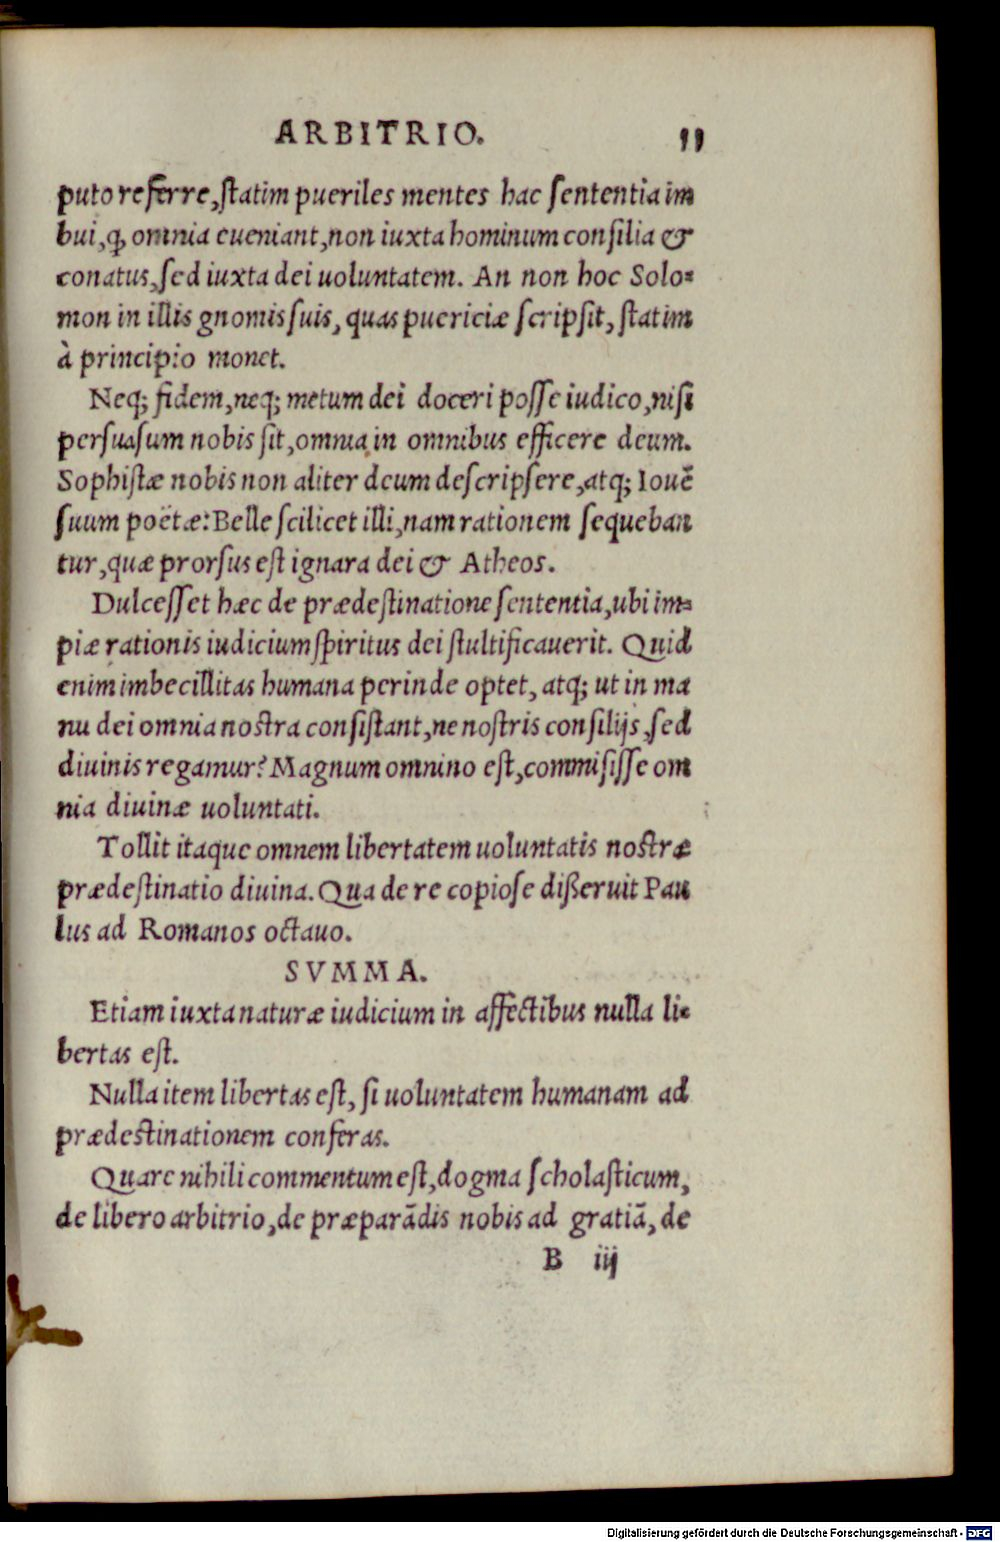 ARBITRIO. 11
puto referre, ſtatim pueriles mentes hac ſententia im
bui, ꝙ omnia eueniant, non iuxta hominum conſilia &
conatus, ſed iuxta dei uoluntatem. An non hoc Solo-
mon in illis gnomis ſuis, quas puericiæ ſcripſit, ſtatim
à principio monet.
Neq; fidem, neq; metum dei doceri poſſe iudico, niſi
perſuaſum nobis ſit, omnia in omnibus efficere deum.
Sophiſtæ nobis non aliter deum deſcripſere, atq; Iouē
ſuum poëtæ: Belle ſcilicet illi, nam rationem ſequeban
tur, quæ prorſus eſt ignara dei & Atheos.
Dulceſſet hæc de prædeſtinatione ſententia, ubi im-
piæ rationis iudicium ſpiritus dei ſtultificauerit. Quid
enim imbecillitas humana perinde optet, atq; ut in ma
nu dei omnia noſtra conſiſtant, ne noſtris conſilijs, ſed
diuinis regamur? Magnum omnino eſt, commiſiſſe om
nia diuinæ uoluntati.
Tollit itaque omnem libertatem uoluntatis noſtræ
prædeſtinatio diuina. Qua de re copioſe dißeruit Pau
lus ad Romanos octauo.
SVMMA.
Etiam iuxta naturæ iudicium in affectibus nulla li-
bertas eſt.
Nulla item libertas eſt, ſi uoluntatem humanam ad
prædeſtinationem conferas.
Quare nihili commentum eſt, dogma ſcholaſticum,
de libero arbitrio, de præparādis nobis ad gratiā, de
B iij
Digitalisierung gefördert durch die Deutsche Forschungsgemeinschaft - DFG